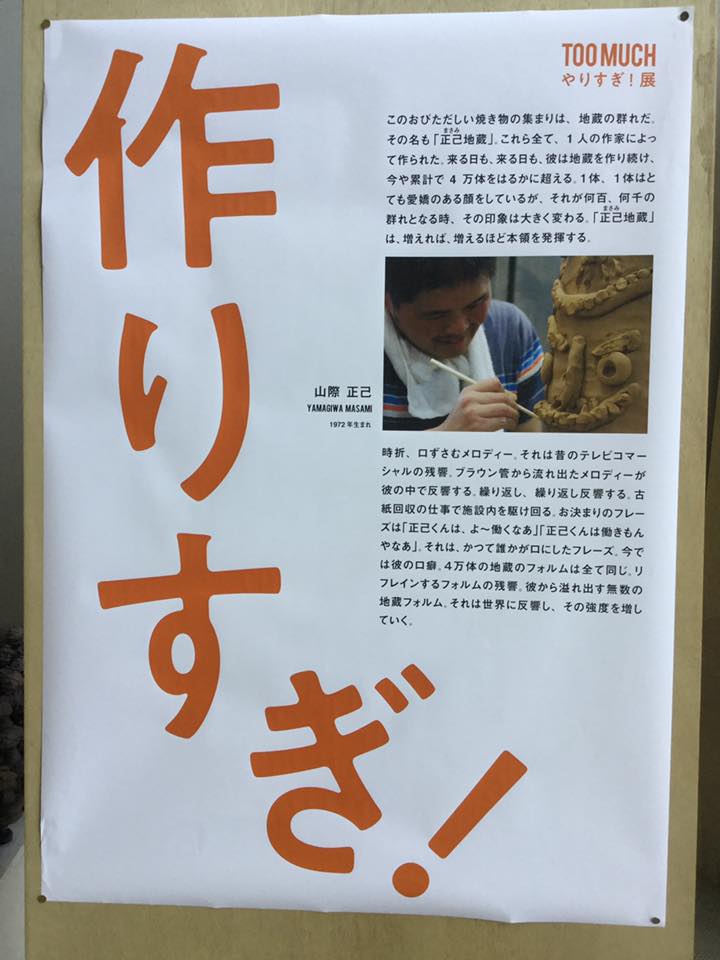 作りすぎ!
TOO MUCH
やりすぎ!展
このおびただしい焼き物の集まりは、地蔵の群れだ。
その名も「正己地蔵」。これら全て、1人の作家によっ
まさみ
て作られた。来る日も、来る日も、彼は地蔵を作り続け、
今や累計で4万体をはるかに超える。1体、1体はと
ても愛嬌のある顔をしているが、それが何百、何千の
群れとなる時、その印象は大きく変わる。「正己地蔵」
まさみ
は、増えれば、増えるほど本領を発揮する。
山際 正己
YAMAGIWA MASAMI
1972年生まれ
時折、口ずさむメロディー。それは昔のテレビコマー
シャルの残響。ブラウン管から流れ出たメロディーが
彼の中で反響する。繰り返し、繰り返し反響する。古
紙回収の仕事で施設内を駆け回る。お決まりのフレー
ズは「正己くんは、よ〜働くなあ」「正己くんは働きもん
やなあ」。それは、かつて誰かが口にしたフレーズ。今で
は彼の口癖。4万体の地蔵のフォルムは全て同じ。リ
フレインするフォルムの残響。彼から溢れ出す無数の
地蔵フォルム。それは世界に反響し、その強度を増し
ていく。